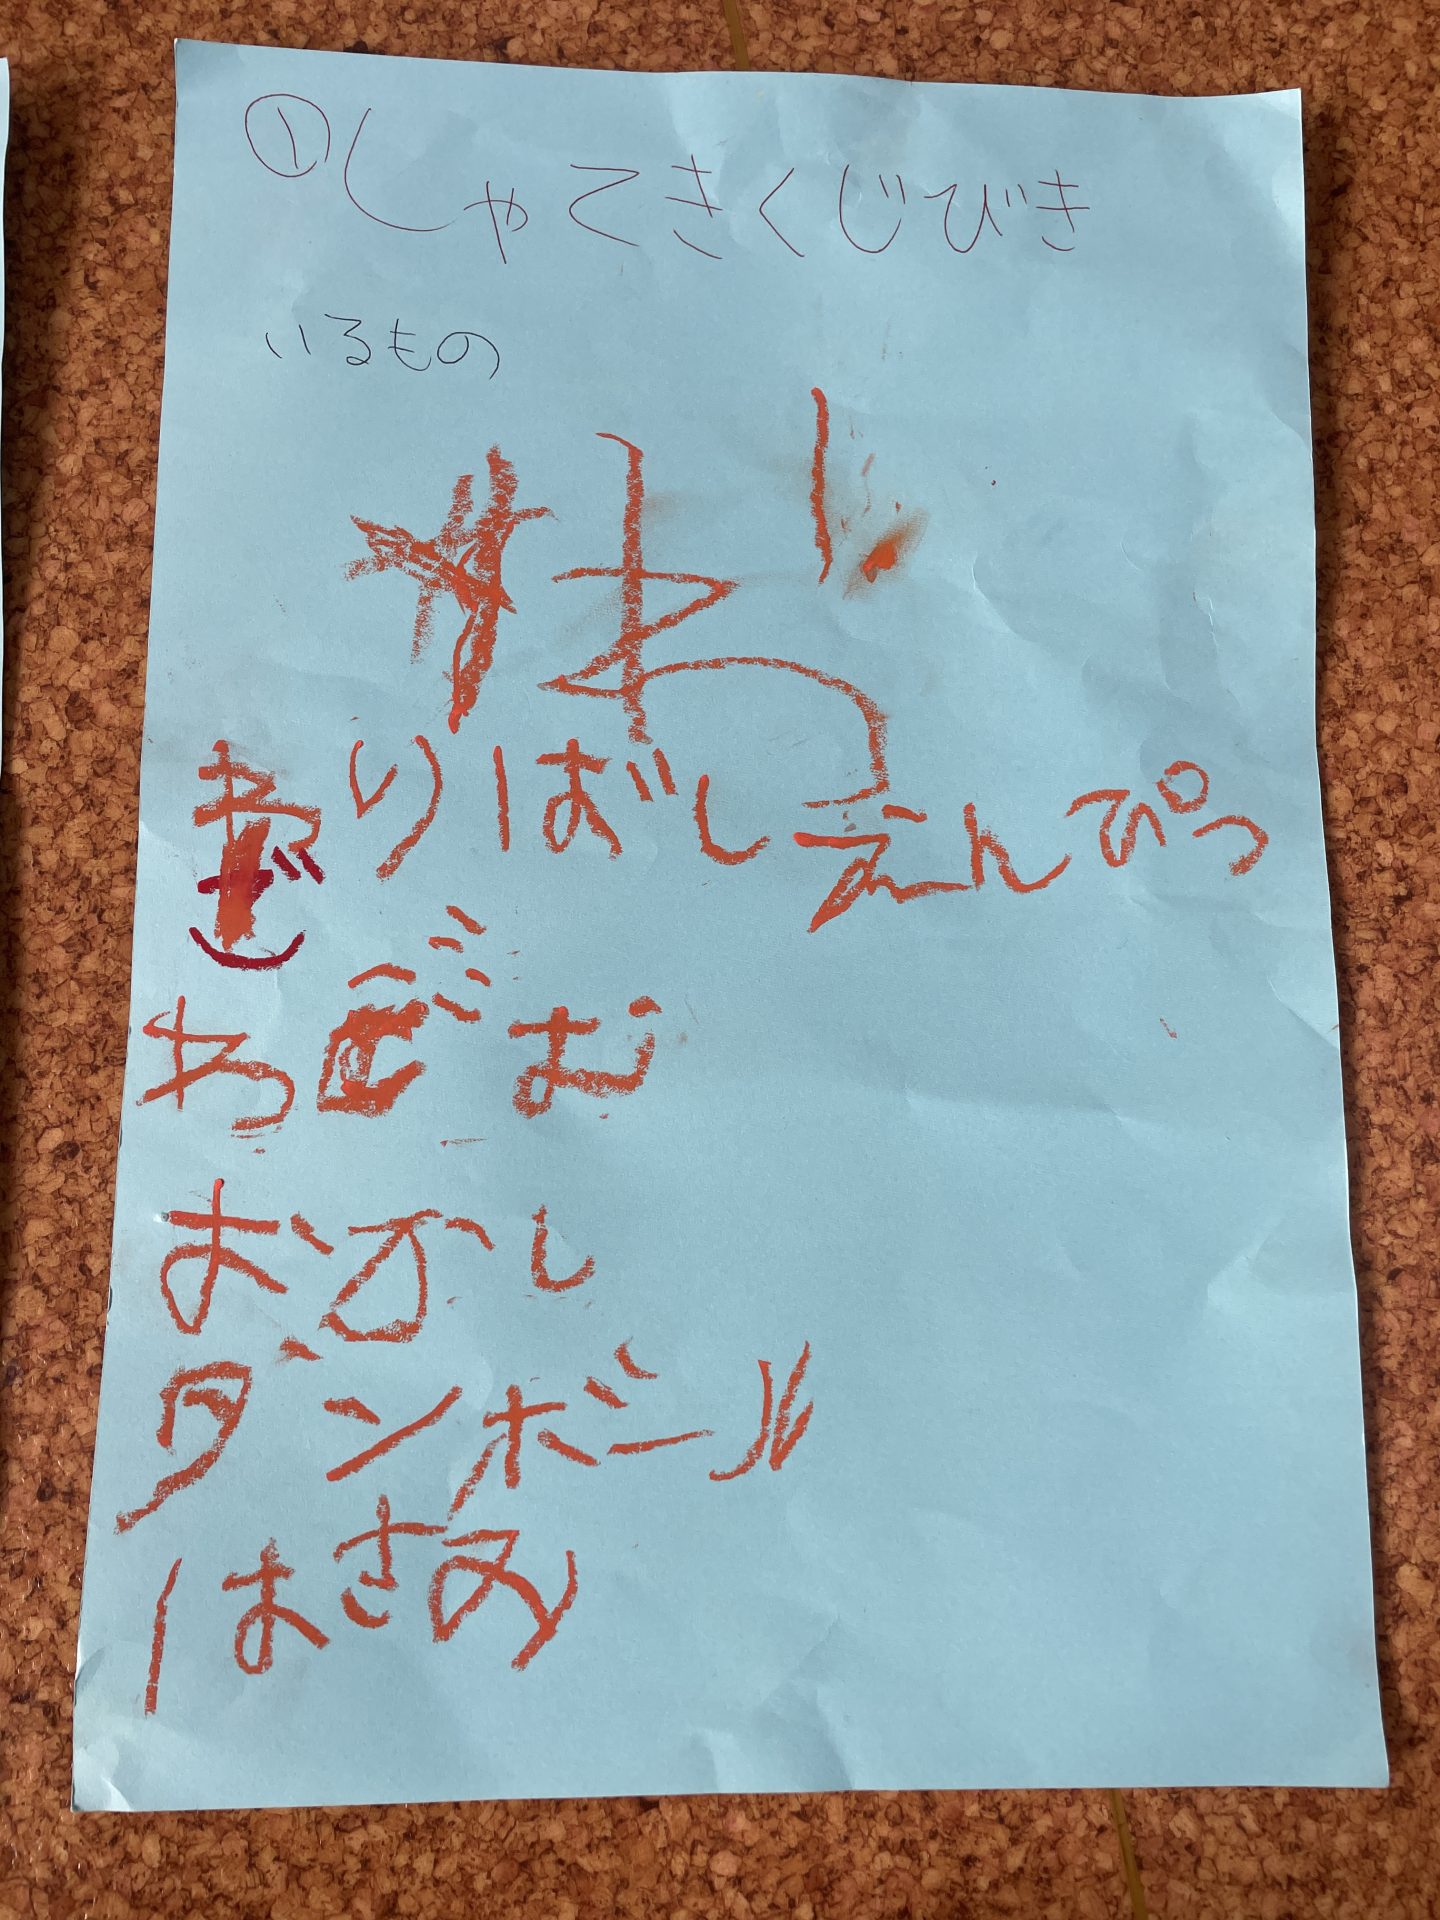 ①しゃてきくじびき
いるもの
わりばし えんぴつ
わごむ
おかし
ダンボール
はさみ